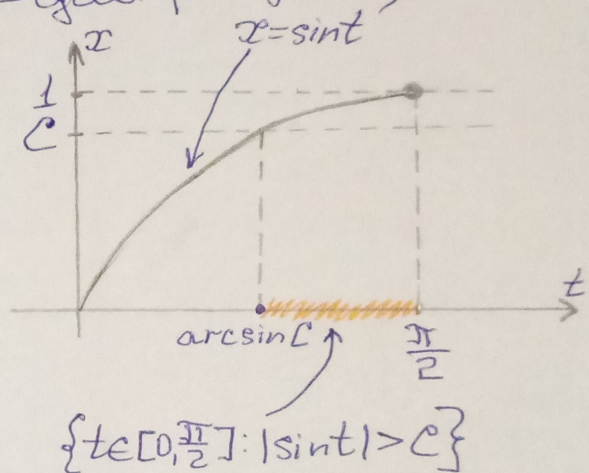 x
x=sint
1
C
t
arcsinC
π/2
{t∈[0,π/2]:|sint|>C}